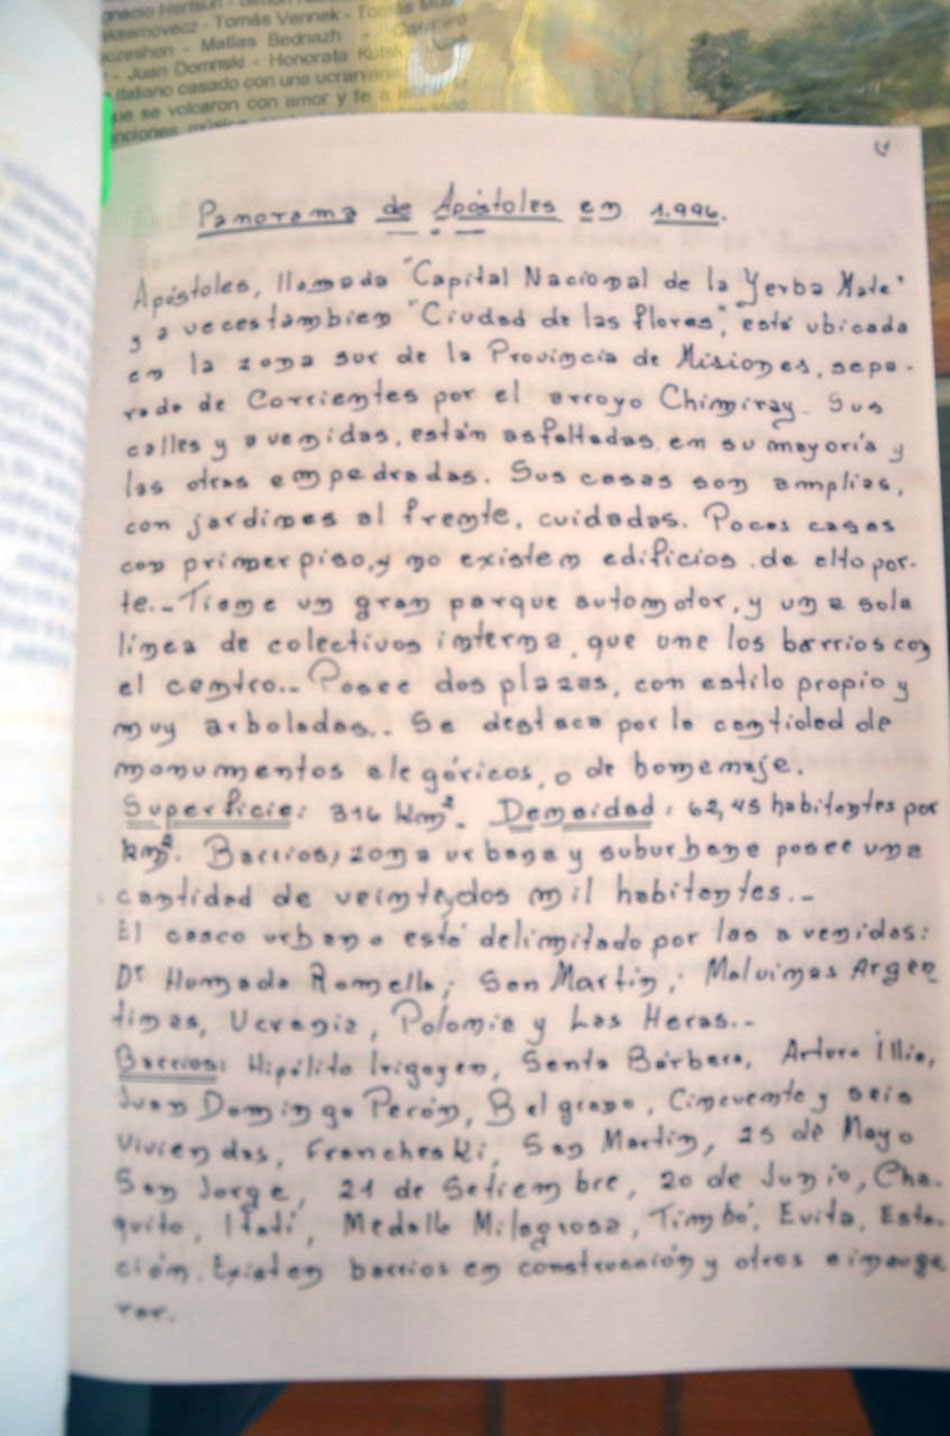 Tomás Vernek - Tomás
Matías Bednazh -
- Juan Domnski - Honorata
italiano casado con una
que se volcaron con amor y fe a
Panorama de Apóstoles en 1.996.
Apóstoles, llamada "Capital Nacional de la Yerba Mate"
y a veces tambien "Ciudad de las flores", está ubicada
en la zona sur de la Provincia de Misiones, sepa-
rada de Corrientes por el arroyo Chimiray. Sus
calles y avenidas, están asfaltadas, en su mayoría y
las otras empedradas. Sus casas son amplias,
con jardines al frente, cuidadas. Pocas casas
con primer piso, y no existen edificios de alto por-
te.- Tiene un gran parque automotor, y una sola
línea de colectivos interna, que une los barrios con
el centro.. Posee dos plazas, con estilo propio y
muy arboladas.. Se destaca por la cantidad de
monumentos alegóricos, o de homenaje.
Superficie: 316 km². Densidad: 62,45 habitantes por
km². Barrios, zona urbana y suburbana posee una
cantidad de veinteydos mil habitantes.-
El casco urbano está delimitado por las avenidas:
Dr Humada Ramella; San Martín; Malvinas Argen
tinas, Ucrania, Polonia y Las Heras..-
Barrios: Hipólito Irigoyen, Santa Bárbara, Arturo Illia,
Juan Domingo Perón, Belgrano, Cincuenta y seis
Viviendas, Francheski, San Martín, 25 de Mayo
San Jorge, 21 de Setiembre, 20 de Junio, Cha-
quito, Itatí, Medalla Milagrosa, Timbó, Evita, Esta-
ción. Existen barrios en construcción y otros a inaugu
rar.